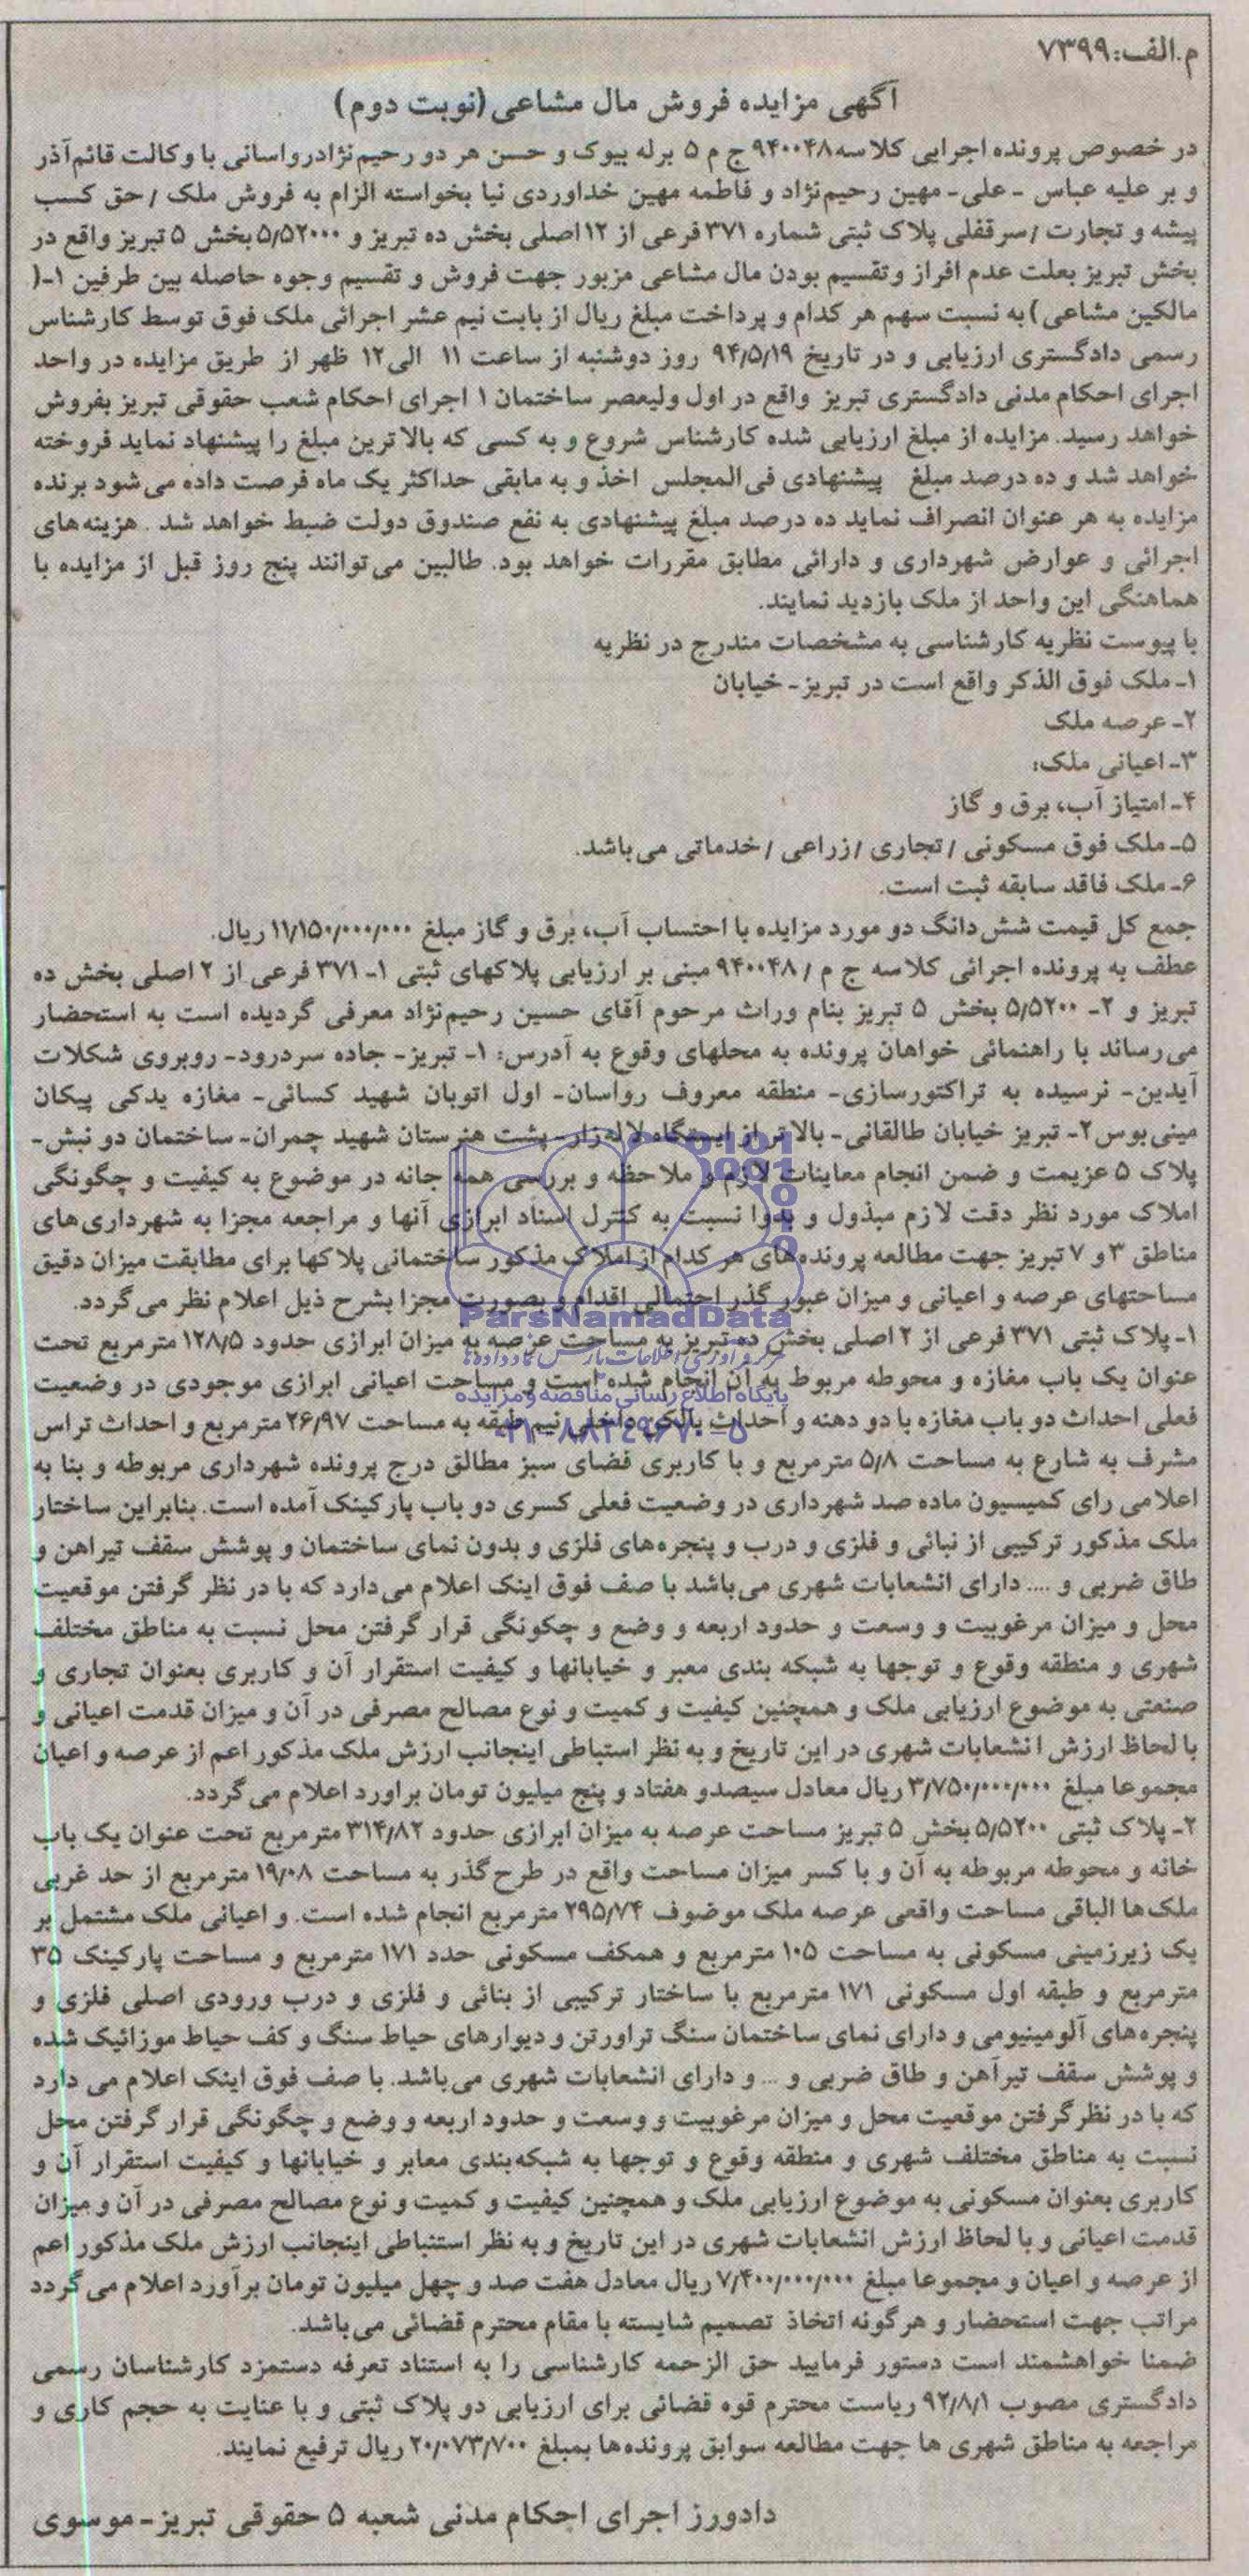 م.الف:۷۳۹۹
آگهی مزایده فروش مال مشاعی (نوبت دوم)
در خصوص پرونده اجرایی کلاسه ۹۴۰۰۴۸ ج م ۵ برله بیوک و حسن هر دو رحیم‌نژاد رواسانی با وکالت قائم‌آذر
و بر علیه عباس - علی- مهین رحیم‌نژاد و فاطمه مهین خداوردی نیا بخواسته الزام به فروش ملک / حق کسب
پیشه و تجارت / سرقفلی پلاک ثبتی شماره ۳۷۱ فرعی از ۱۲ اصلی بخش ده تبریز و ۵/۵۲۰۰۰ بخش ۵ تبریز واقع در
بخش تبریز بعلت عدم افراز وتقسیم بودن مال مشاعی مزبور جهت فروش و تقسیم وجوه حاصله بین طرفین ۱-(
مالکین مشاعی) به نسبت سهم هر کدام و پرداخت مبلغ ریال از بابت نیم عشر اجرائی ملک فوق توسط کارشناس
رسمی دادگستری ارزیابی و در تاریخ ۹۴/۵/۱۹ روز دوشنبه از ساعت ۱۱ الی۱۲ ظهر از طریق مزایده در واحد
اجرای احکام مدنی دادگستری تبریز واقع در اول ولیعصر ساختمان ۱ اجرای احکام شعب حقوقی تبریز بفروش
خواهد رسید. مزایده از مبلغ ارزیابی شده کارشناس شروع و به کسی که بالاترین مبلغ را پیشنهاد نماید فروخته
خواهد شد و ده درصد مبلغ پیشنهادی فی‌المجلس اخذ و به مابقی حداکثر یک ماه فرصت داده می‌شود برنده
مزایده به هر عنوان انصراف نماید ده درصد مبلغ پیشنهادی به نفع صندوق دولت ضبط خواهد شد . هزینه‌های
اجرائی و عوارض شهرداری و دارائی مطابق مقررات خواهد بود. طالبین می‌توانند پنج روز قبل از مزایده با
هماهنگی این واحد از ملک بازدید نمایند.
با پیوست نظریه کارشناسی به مشخصات مندرج در نظریه
۱- ملک فوق الذکر واقع است در تبریز- خیابان
۲- عرصه ملک
۳- اعیانی ملک:
۴- امتیاز آب، برق و گاز
۵- ملک فوق مسکونی / تجاری / زراعی / خدماتی می‌باشد.
۶- ملک فاقد سابقه ثبت است.
جمع کل قیمت شش‌دانگ دو مورد مزایده با احتساب آب، برق و گاز مبلغ ۱۱/۱۵۰/۰۰۰/۰۰۰ ریال.
عطف به پرونده اجرائی کلاسه ج م / ۹۴۰۰۴۸ مبنی بر ارزیابی پلاکهای ثبتی ۱- ۳۷۱ فرعی از ۲ اصلی بخش ده
تبریز و ۲- ۵/۵۲۰۰ بخش ۵ تبریز بنام وراث مرحوم آقای حسین رحیم‌نژاد معرفی گردیده است به استحضار
می‌رساند با راهنمائی خواهان پرونده به محلهای وقوع به آدرس: ۱- تبریز- جاده سردرود- روبروی شکلات
آیدین- نرسیده به تراکتورسازی- منطقه معروف رواسان- اول اتوبان شهید کسائی- مغازه یدکی پیکان
مینی‌بوس ۲- تبریز خیابان طالقانی- بالاتر از ایستگاه لاله‌زار- پشت هنرستان شهید چمران- ساختمان دو نبش-
پلاک ۵ عزیمت و ضمن انجام معاینات لازم و ملاحظه و بررسی همه جانه در موضوع به کیفیت و چگونگی
املاک مورد نظر دقت لازم مبذول و بدوا نسبت به کنترل اسناد ابرازی آنها و مراجعه مجزا به شهرداری‌های
مناطق ۳ و ۷ تبریز جهت مطالعه پرونده‌های هر کدام از املاک مذکور ساختمانی پلاکها برای مطابقت میزان دقیق
مساحتهای عرصه و اعیانی و میزان عبور گذر احتمالی اقدام و بصورت مجزا بشرح ذیل اعلام نظر می‌گردد.
۱- پلاک ثبتی ۳۷۱ فرعی از ۲ اصلی بخش ده تبریز به مساحت عرصه به میزان ابرازی حدود ۱۲۸/۵ مترمربع تحت
عنوان یک باب مغازه و محوطه مربوط به آن انجام شده است و مساحت اعیانی ابرازی موجودی در وضعیت
فعلی احداث دو باب مغازه با دو دهنه و احداث بالکن داخلی نیم طبقه به مساحت ۲۶/۹۷ مترمربع و احداث تراس
مشرف به شارع به مساحت ۵/۸ مترمربع و با کاربری فضای سبز مطالق درج پرونده شهرداری مربوطه و بنا به
اعلامی رای کمیسیون ماده صد شهرداری در وضعیت فعلی کسری دو باب پارکینک آمده است. بنابراین ساختار
ملک مذکور ترکیبی از نبائی و فلزی و درب و پنجره‌های فلزی و بدون نمای ساختمان و پوشش سقف تیراهن و
طاق ضربی و .... دارای انشعابات شهری می‌باشد با صف فوق اینک اعلام می‌دارد که با در نظر گرفتن موقعیت
محل و میزان مرغوبیت و وسعت و حدود اربعه و وضع و چکونگی قرار گرفتن محل نسبت به مناطق مختلف
شهری و منطقه وقوع و توجها به شبکه بندی معبر و خیابانها و کیفیت استقرار آن و کاربری بعنوان تجاری و
صنعتی به موضوع ارزیابی ملک و همچنین کیفیت و کمیت و نوع مصالح مصرفی در آن و میزان قدمت اعیانی و
با لحاظ ارزش انشعابات شهری در این تاریخ و به نظر استباطی اینجانب ارزش ملک مذکور اعم از عرصه و اعیان
مجموعا مبلغ ۳/۷۵۰/۰۰۰/۰۰۰ ریال معادل سیصدو هفتاد و پنج میلیون تومان براورد اعلام می‌گردد.
۲- پلاک ثبتی ۵/۵۲۰۰ بخش ۵ تبریز مساحت عرصه به میزان ابرازی حدود ۳۱۴/۸۲ مترمربع تحت عنوان یک باب
خانه و محوطه مربوطه به آن و با کسر میزان مساحت واقع در طرح گذر به مساحت ۱۹/۰۸ مترمربع از حد غربی
ملک‌ها الباقی مساحت واقعی عرصه ملک موضوف ۲۹۵/۷۴ مترمربع انجام شده است. و اعیانی ملک مشتمل بر
یک زیرزمینی مسکونی به مساحت ۱۰۵ مترمربع و همکف مسکونی حدد ۱۷۱ مترمربع و مساحت پارکینک ۳۵
مترمربع و طبقه اول مسکونی ۱۷۱ مترمربع با ساختار ترکیبی از بنائی و فلزی و درب ورودی اصلی فلزی و
پنجره‌های آلومینیومی و دارای نمای ساختمان سنگ تراورتن و دیوارهای حیاط سنگ و کف حیاط موزائیک شده
و پوشش سقف تیرآهن و طاق ضربی و ... و دارای انشعابات شهری می‌باشد. با صف فوق اینک اعلام می دارد
که با در نظر گرفتن موقعیت محل و میزان مرغوبیت و وسعت و حدود اربعه و وضع و چگونگی قرار گرفتن محل
نسبت به مناطق مختلف شهری و منطقه وقوع و توجها به شبکه‌بندی معابر و خیابانها و کیفیت استقرار آن و
کاربری بعنوان مسکونی به موضوع ارزیابی ملک و همچنین کیفیت و کمیت و نوع مصالح مصرفی در آن و میزان
قدمت اعیانی و با لحاظ ارزش انشعابات شهری در این تاریخ و به نظر استنباطی اینجانب ارزش ملک مذکور اعم
از عرصه و اعیان و مجموعا مبلغ ۷/۴۰۰/۰۰۰/۰۰۰ ریال معادل هفت صد و چهل میلیون تومان برآورد اعلام می‌گردد
مراتب جهت استحضار و هرگونه اتخاذ تصمیم شایسته با مقام محترم قضائی می‌باشد.
ضمنا خواهشمند است دستور فرمایید حق الزحمه کارشناسی را به استناد تعرفه دستمزد کارشناسان رسمی
دادگستری مصوب ۹۲/۸/۱ ریاست محترم قوه قضائی برای ارزیابی دو پلاک ثبتی و با عنایت به حجم کاری و
مراجعه به مناطق شهری ها جهت مطالعه سوابق پرونده‌ها بمبلغ ۲۰/۰۷۳/۷۰۰ ریال ترفیع نمایند.
دادورز اجرای احکام مدنی شعبه ۵ حقوقی تبریز- موسوی
ParsNamadData
پایگاه اطلاع رسانی مناقصه و مزایده
۰۲۱-۸۸۳۴۹۶۷۰-۵